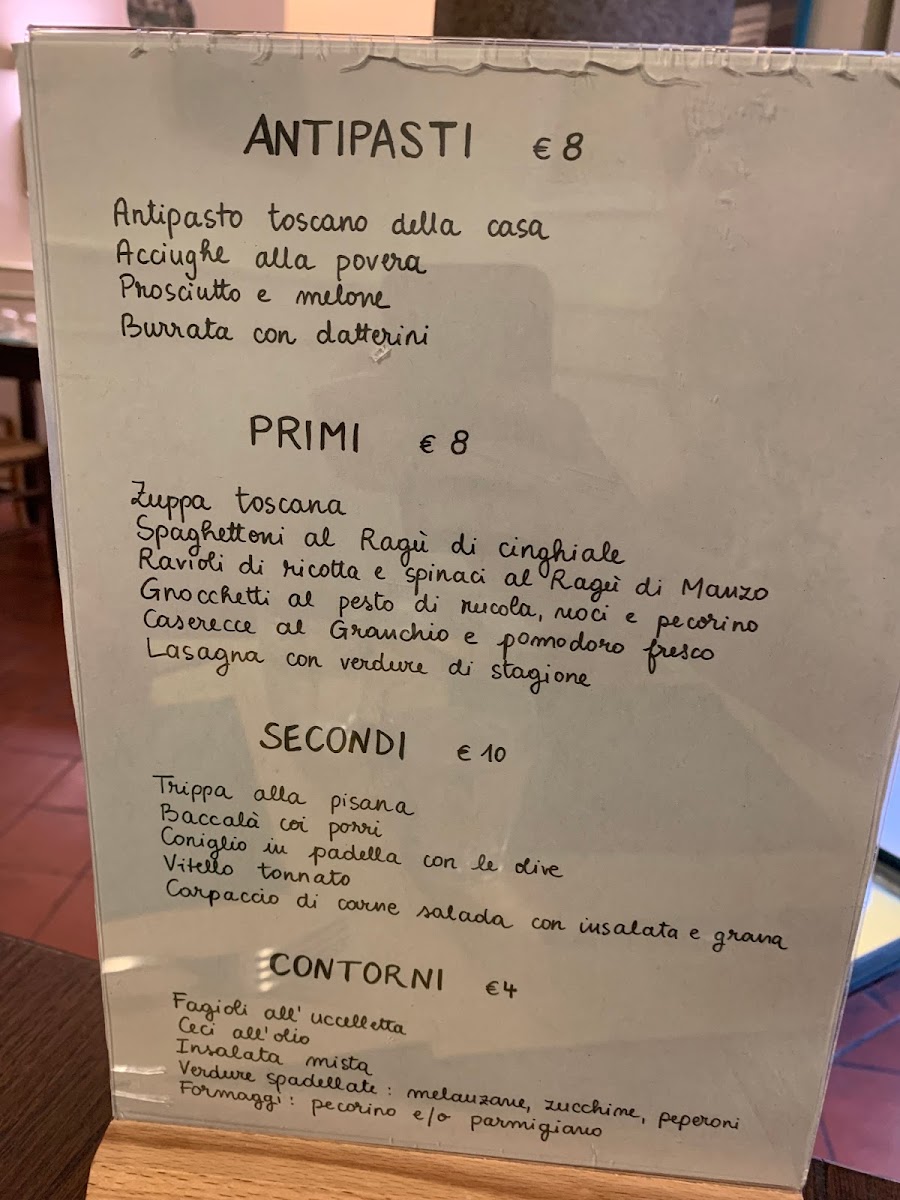 ANTIPASTI € 8
Antipasto toscano della casa
Acciughe alla povera
Prosciutto e melone
Burrata con datterini
PRIMI € 8
Zuppa toscana
Spaghettoni al Ragù di cinghiale
Ravioli di ricotta e spinaci al Ragù di Manzo
Gnocchetti al pesto di rucola, noci e pecorino
Caserecce al Granchio e pomodoro fresco
Lasagna con verdure di stagione
SECONDI € 10
Trippa alla pisana
Baccalà coi porri
Coniglio in padella con le olive
Vitello tonnato
Carpaccio di carne salada con insalata e grana
CONTORNI €4
Fagioli all'uccelletta
Ceci all'olio
Insalata mista
Verdure spadellate: melanzane, zucchine, peperoni
Formaggi: pecorino e/o parmigiano